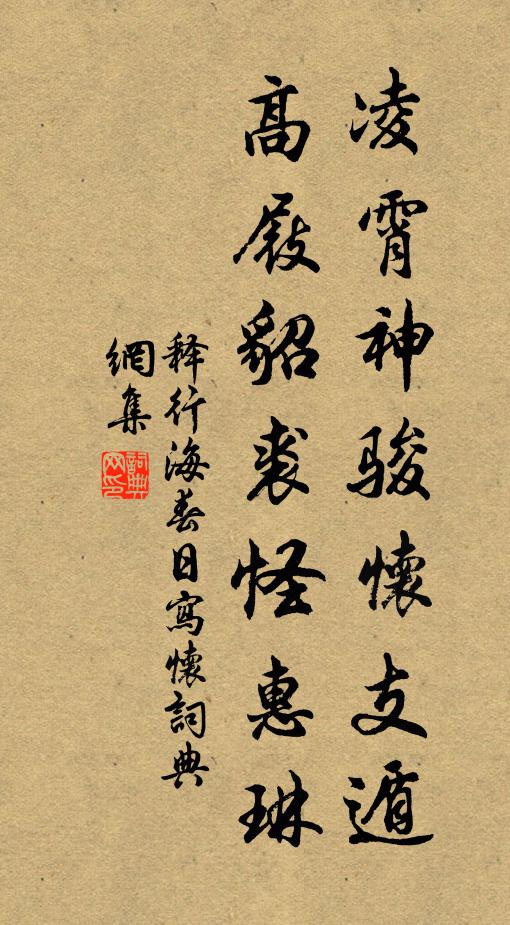 凌霄神駿懷支遁
高屐貂裘怪惠琳
释行海春日寫懷詞典
網集
詞典
网印